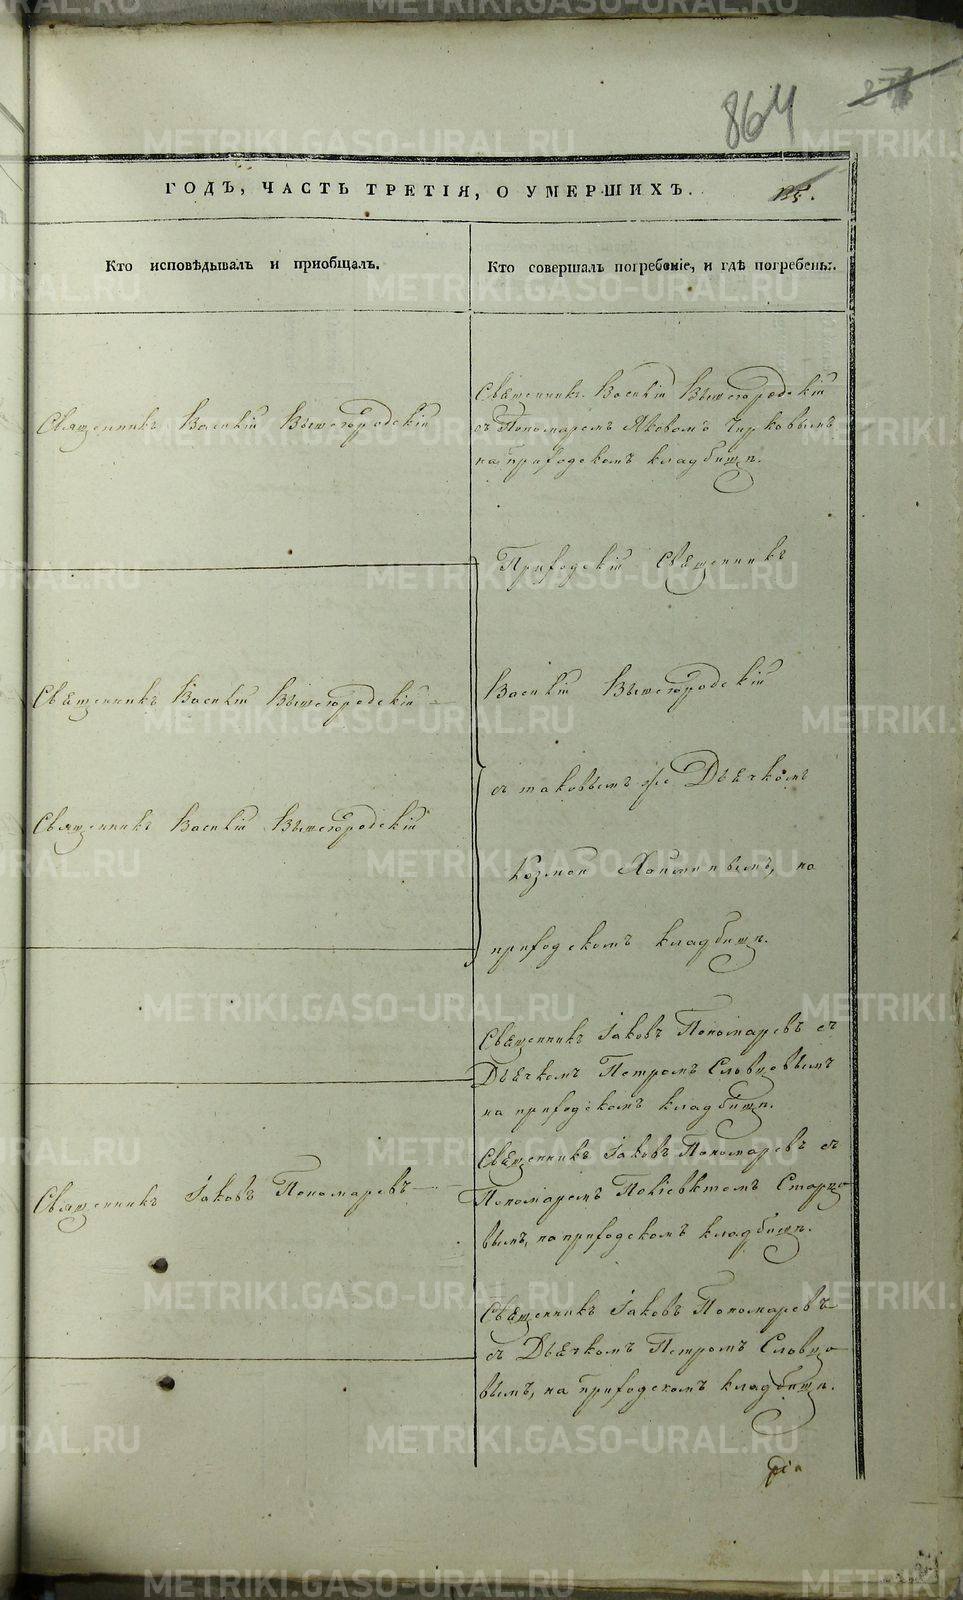 864
ГОДЪ, ЧАСТЬ ТРЕТІЯ, О УМЕРШИХЪ.
Кто исповѣдывалъ и пріобщалъ.
Кто совершалъ погребеніе, и гдѣ погребены.
Священникъ Василій Вышегородскій
Священникъ Василій Вышегородскій
съ Пономаремъ Яковомъ Чирковымъ
на приходскомъ кладбищѣ.
Приходскій Священникъ
Священникъ Василій Вышегородскій
Василій Вышегородскій
съ таковымъ же Дьячкомъ
Священникъ Василій Вышегородскій
Козмою на
приходскомъ кладбищѣ.
Священникъ Іаковъ Пономаревъ съ
Дьячкомъ Петромъ Словцовымъ
на приходскомъ кладбищѣ.
Священникъ Іаковъ Пономаревъ
Священникъ Іаковъ Пономаревъ съ
Пономаремъ Старцо
вымъ, на приходскомъ кладбищѣ.
Священникъ Іаковъ Пономаревъ
съ Дьячкомъ Петромъ Словцо
вымъ, на приходскомъ кладбищѣ.
METRIKI.GASO-URAL.RU